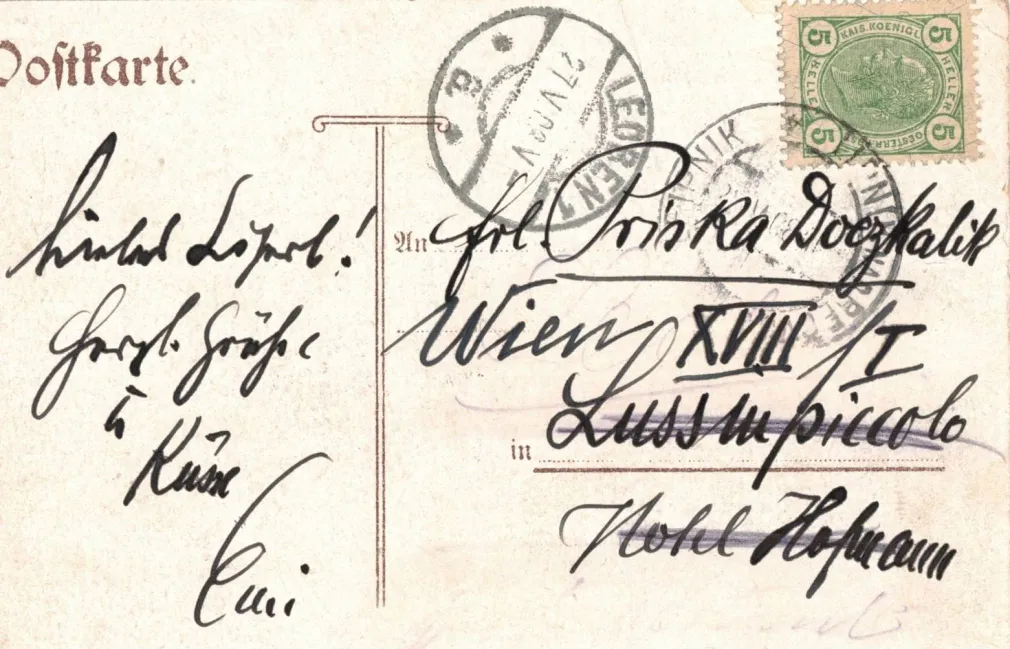 Postkarte.
LEOBEN 1
27. V. 08
KAIS. KOENIGL.
OESTERR.
5 HELLER 5
5 HELLER 5
LIPNIK
Liebes !
Herzl. Grüße
u
Küsse
Emi
An Frl. Priska Doczkalik
Wien XVIII/I
in Lussinpiccolo
Hotel Hofmann